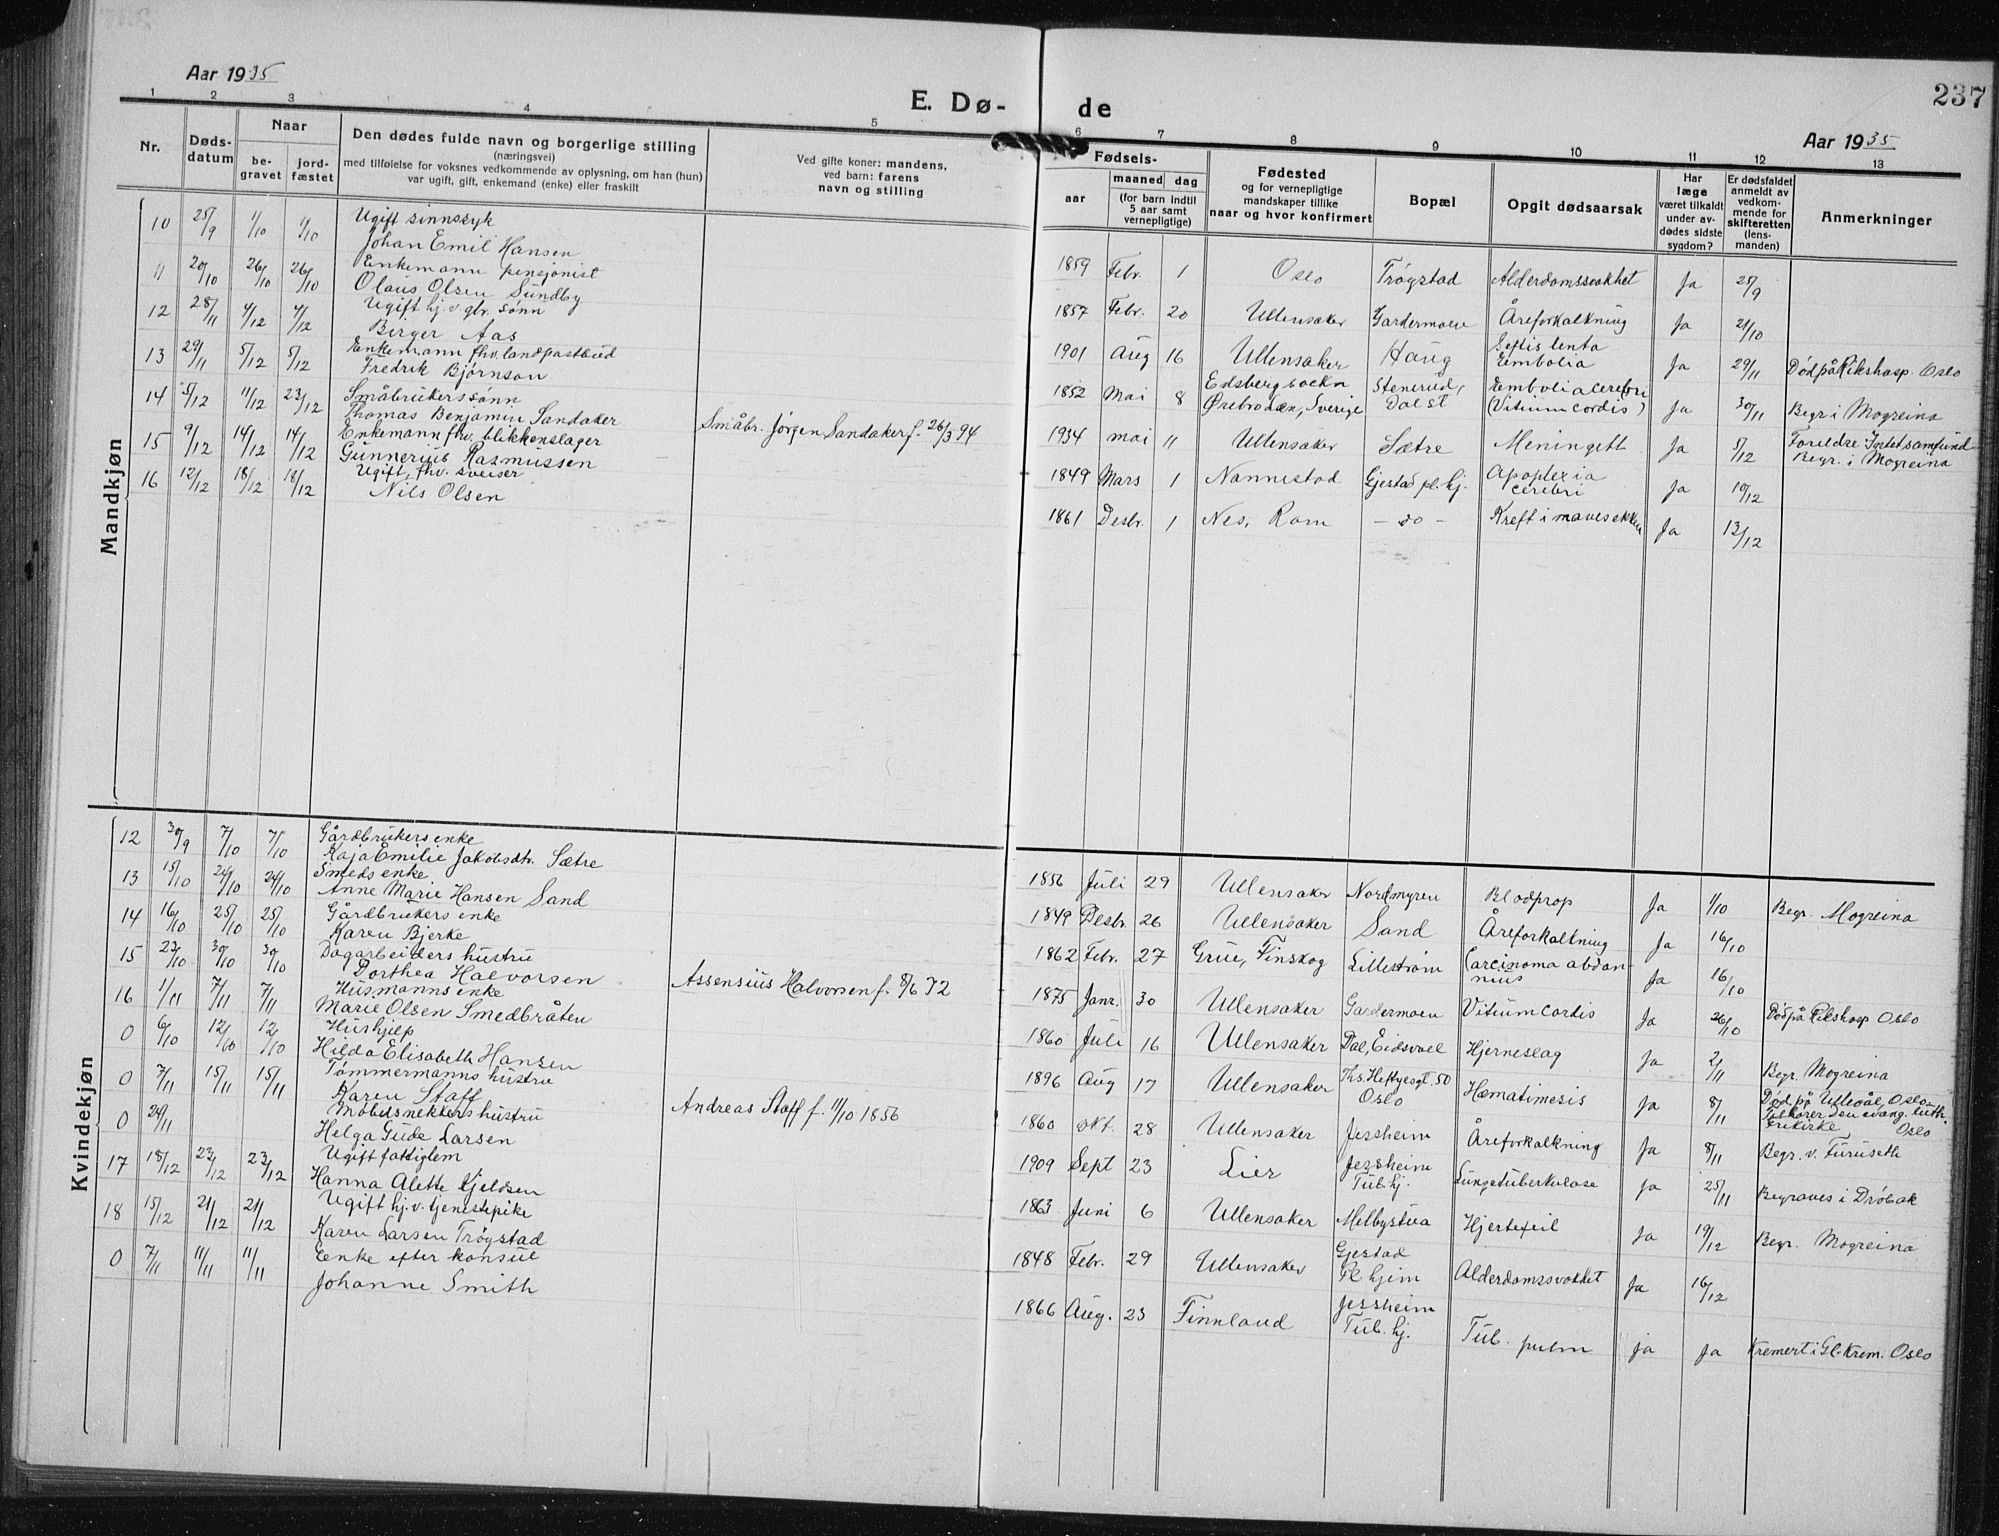 Aar 1935
E. Dø- de
237
Aar 1935
1 2 3 4 5 6 7 8 9 10 11 12 13
Nr.
Døds-
datum
Naar
be-
gravet
jord-
fæstet
Den dødes fulde navn og borgerlige stilling
(næringsvei)
med tilføielse for voksnes vedkommende av oplysning, om han (hun)
var ugift, gift, enkemand (enke) eller fraskilt
Ved gifte koner: mandens,
ved barn: farens
navn og stilling
Fødsels-
aar
maaned dag
(for barn indtil
5 aar samt
vernepligtige)
Fødested
og for vernepligtige
mandskaper tillike
naar og hvor konfirmert
Bopæl
Opgit dødsaarsak
Har
læge
været tilkaldt
under av-
dødes sidste
sygdom?
Er dødsfaldet
anmeldt av
vedkom-
mende for
skifteretten
(lens-
manden)
Anmerkninger
Mandkjøn
10 25/9 1/10 1/10 Ugift sinnssyk
Johan Emil Hansen
1859 Febr. 1 Oslo Trøgstad Alderdomssvakhet Ja 25/9
11 20/10 26/10 26/10 Enkemann pensjonist
Olaus Olsen Sundby
1857 Febr. 20 Ullensaker Gardermoen Åreforkalkning Ja 21/10
12 28/11 4/12 4/12 Ugift hj. v. gbr. sønn
Birger Aas
1901 Aug 16 Ullensaker Haug Septis lenta
Eimbolia Ja 29/11 Død på Rikshosp. Oslo
13 29/11 5/12 5/12 Enkemann fhv. landpostbud
Fredrik Bjørnson
1852 Mai 8 Edsberg sockn
Ørebro læn, Sverige Stenerud,
Dal st Embolia cerebri
(Vitium cordis) Ja 30/11 Begr. i Mogreina
14 5/12 11/12 23/12 Småbrukerssønn
Thomas Benjamin Sandaker Småbr. Jørgen Sandaker f. 26/3 94
1934 mai 11 Ullensaker Sætre Meningitt Ja 5/12 Foreldre Intetsamfund
Begr. i Mogreina
15 9/12 14/12 14/12 Enkemann fhv. blikkenslager
Gunnerius Rasmussen
1849 Mars 1 Nannestad Gjestad pl. hj. Apoplexia
cerebri Ja 10/12
16 12/12 18/12 18/12 Ugift, fhv. sveiser
Nils Olsen
1861 Desbr. 1 Nes, Rom - do - Kreft i mavesekken Ja 13/12
Kvindekjøn
12 30/9 7/10 7/10 Gårdbrukers enke
Kaja Emilie Jakobsdtr. Sætre
1856 Juli 29 Ullensaker Nordmyren Blodprop Ja 1/10 Begr. Mogreina
13 15/10 24/10 24/10 Smeds enke
Anne Marie Hansen Sand
1849 Desbr. 26 Ullensaker Sand Åreforkalkning Ja 16/10
14 16/10 25/10 25/10 Gårdbrukers enke
Karen Bjerke
1862 Febr. 27 Grue, Finskog Lillestrøm Carcinoma abdon-
nius Ja 16/10
15 23/10 30/10 30/10 Dagarbeiders hustru
Dorthea Halvorsen Assensius Halvorsen f. 8/6 72
1875 Janr. 30 Ullensaker Gardermoen Vitium cordis Ja 26/10 Død på Rikshosp Oslo
16 1/11 7/11 7/11 Husmanns enke
Marie Olsen Smedbråten
1860 Juli 16 Ullensaker Dal, Eidsvoll Hjerneslag Ja 2/11 Begr. Mogreina
0 6/10 12/10 12/10 Hushjelp
Hilda Elisabeth Hansen
1896 Aug 17 Ullensaker Ths. Heftyesgt. 50
Oslo Hæmatimesis Ja 8/11 Død på Ullevål, Oslo
Tilhører den evang. luth.
frikirke Oslo
0 7/11 15/11 15/11 Tømmermanns hustru
Karen Staff Andreas Staff f. 11/10 1856
1860 okt. 28 Ullensaker Jessheim Åreforkalkning Ja 8/11 Begr. v. Furuseth
0 24/11 Møbelsnekkers hustru
Helga Gude Larsen
1909 Sept 23 Lier Jessheim
Tub. hj. Lungetuberkulose Ja 25/11 Begraves i Drøbak
17 18/12 23/12 23/12 Ugift fattiglem
Hanna Alette Kjeldsen
1863 Juni 6 Ullensaker Melbystua Hjertefeil Ja 19/12 Begr. Mogreina
18 15/12 21/12 21/12 Ugift hj. v. tjenestepike
Karen Larsen Trøgstad
1848 Febr. 29 Ullensaker Gjestad
Pl hjem Alderdomssvakhet Ja 16/12
0 7/11 11/11 11/11 Enke efter konsul
Johanne Smith
1866 Aug. 23 Finnland Jessheim
Tub. hj. Tub. pulm ja Ja Kremert i Gl. Krem. Oslo